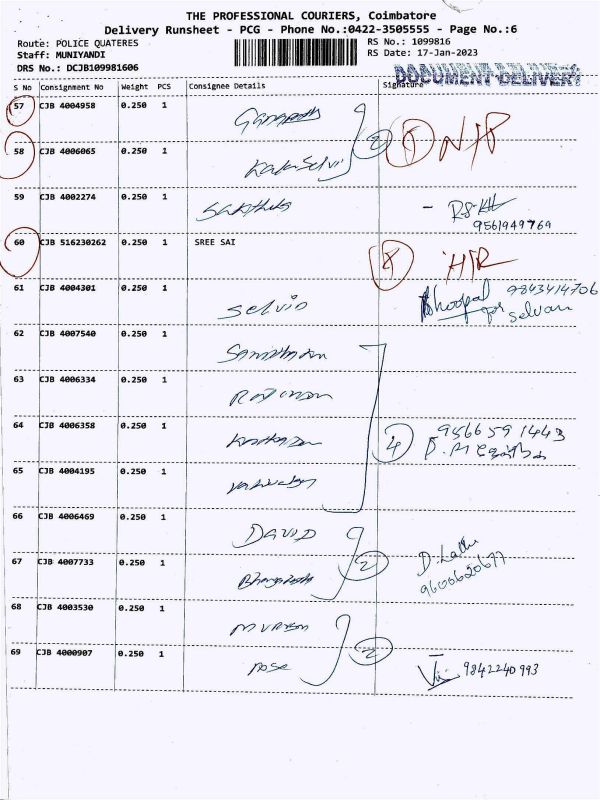 THE PROFESSIONAL COURIERS, Coimbatore
Delivery Runsheet - PCG - Phone No.:0422-3505555 - Page No.:6
Route: POLICE QUATERES
RS No.: 1099816
Staff: MUNIYANDI
RS Date: 17-Jan-2023
DRS No.: DCJB109981606
DOCUMENT DELIVERY
S No Consignment No Weight PCS Consignee Details Signature
57 CJB 4004958 0.250 1
58 CJB 4006065 0.250 1 KalaiSelvi 2
59 CJB 4002274 0.250 1
9561949769
60 CJB 516230262 0.250 1 SREE SAI
61 CJB 4004301 0.250 1 Selvio Bhoopal 9843414706
for Selvan
62 CJB 4007540 0.250 1
63 CJB 4006334 0.250 1
64 CJB 4006358 0.250 1 4 9566591443
65 CJB 4004195 0.250 1
66 CJB 4006469 0.250 1 DAVID
67 CJB 4007733 0.250 1 2 9600620677
68 CJB 4003530 0.250 1 MURUGAN
69 CJB 4000907 0.250 1 Rose 2 9842240993